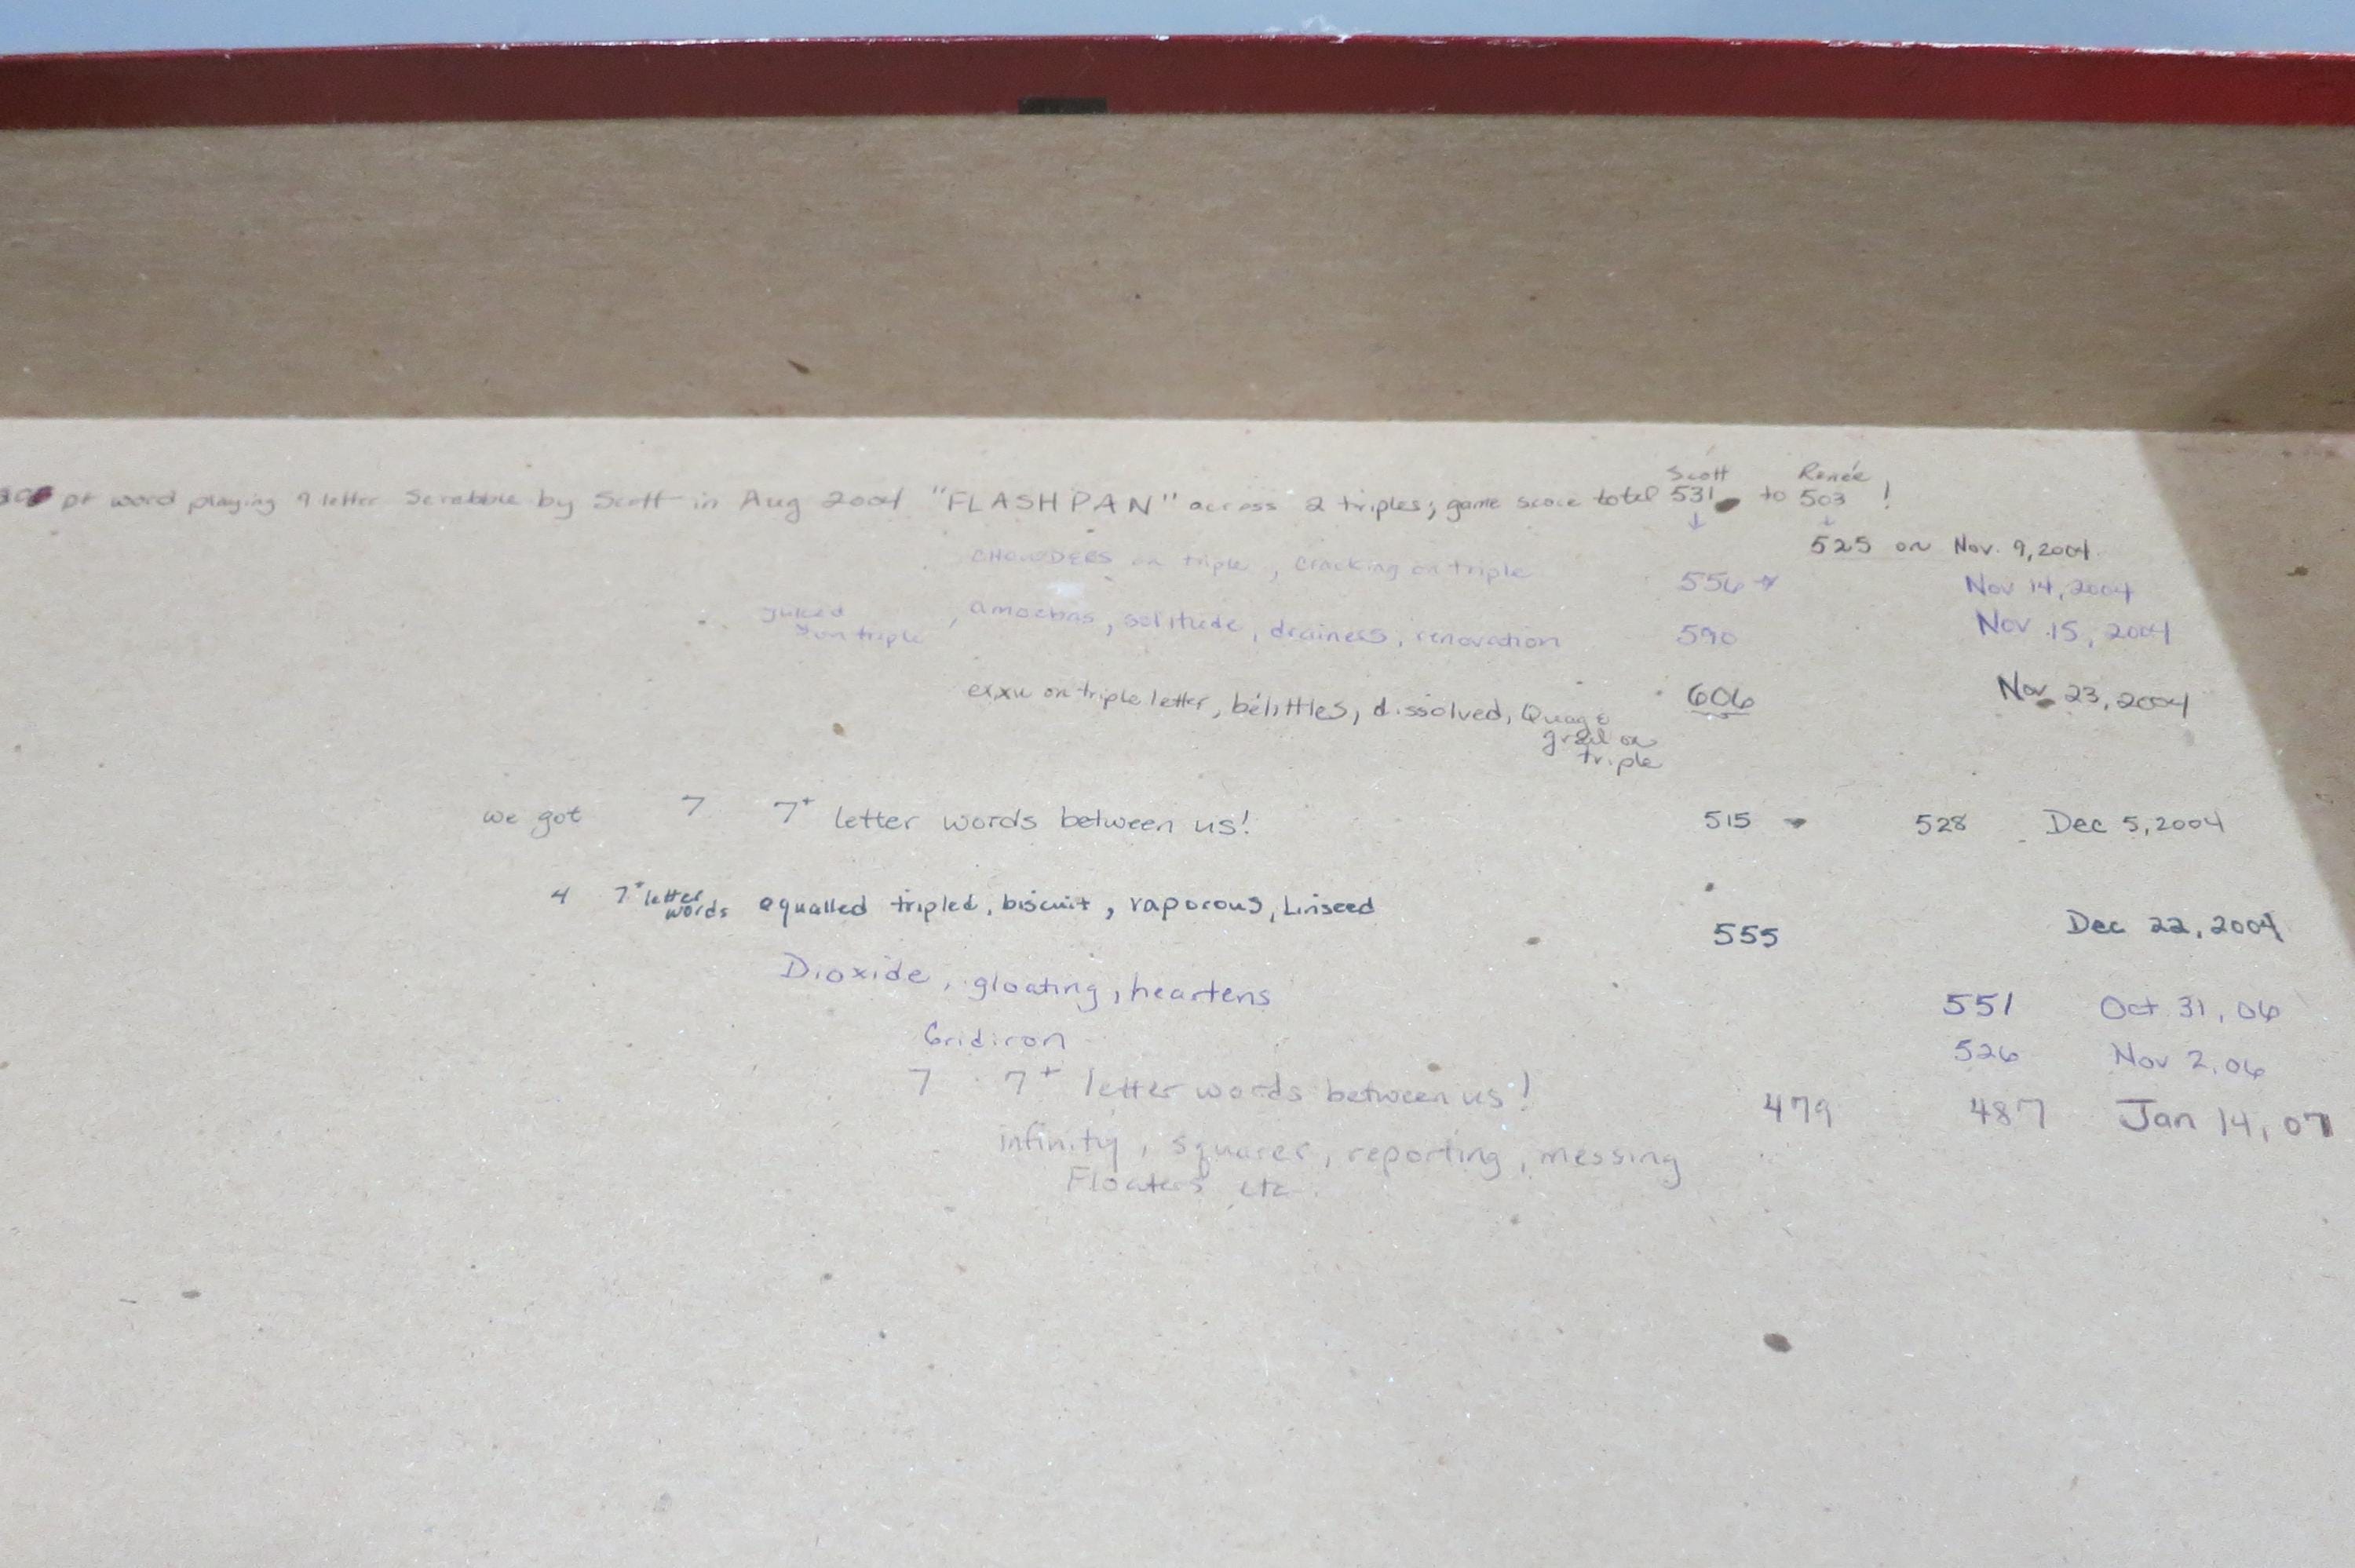 Scott Renée
pt word playing 9 letter Scrabble by Scott in Aug 2004 "FLASHPAN" across 2 triples; game score total 531 to 503 !
↓ ↓
525 on Nov. 9, 2004
CHOWDERS on triple, cracking on triple 556 Nov 14, 2004
juked
on triple, amoebas, solitude, drainers, renovation 590 Nov 15, 2004
on triple letter, belittles, dissolved, 606 Nov 23, 2004
on
triple
we got 7 7+ letter words between us! 515 528 Dec 5, 2004
4 7+ letter
words equalled tripled, biscuit, vaporous, Linseed
555 Dec 22, 2004
Dioxide, gloating, heartens 551 Oct 31, 06
Gridiron 526 Nov 2, 06
7 7+ letter words between us! 479 487 Jan 14, 07
infinity, squarer, reporting, messing
Floaters etc.